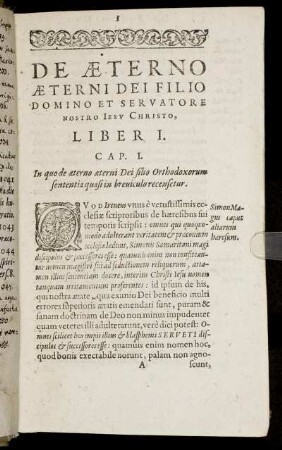 1
DE ÆTERNO
ÆTERNI DEI FILIO
DOMINO ET SERVATORE
NOSTRO IESV CHRISTO,
LIBER I.
CAP. I.
In quo de æterno æterni Dei filio Orthodoxorum
sententia quasi in breviculo recensetur.
QVOD Irenæus vnus è vetustissimis ec-
clesiæ scriptoribus de hæresibus sui
temporis scripsit: omnes qui quoquo-
modo adulterant veritatem, & præconium
ecclesiæ lædunt, Simonis Samaritani magi
discipulos & successores esse: quamuis enim non confitean-
tur nomen magistri sui ad seductionem reliquorum, atta-
men illius sententiam docere, interim Christi Iesu nomen
tanquam irritamentum præferentes: id ipsum de his,
qui nostra ætate, quæ eximio Dei beneficio multi
errores superioris ætatis emendati sunt, puram &
sanam doctrinam de Deo non minus impudenter
quam veteres illi adulterarunt, verè dici potest: O-
mnes scilicet hos impii illius & blasphemi SERVETI di-
scipulos & successores esse: quamuis enim nomen hoc,
quod bonis execrabile norunt, palam non agno-
A
scunt,
Simon Ma-
gus caput
altarum
hæresium.